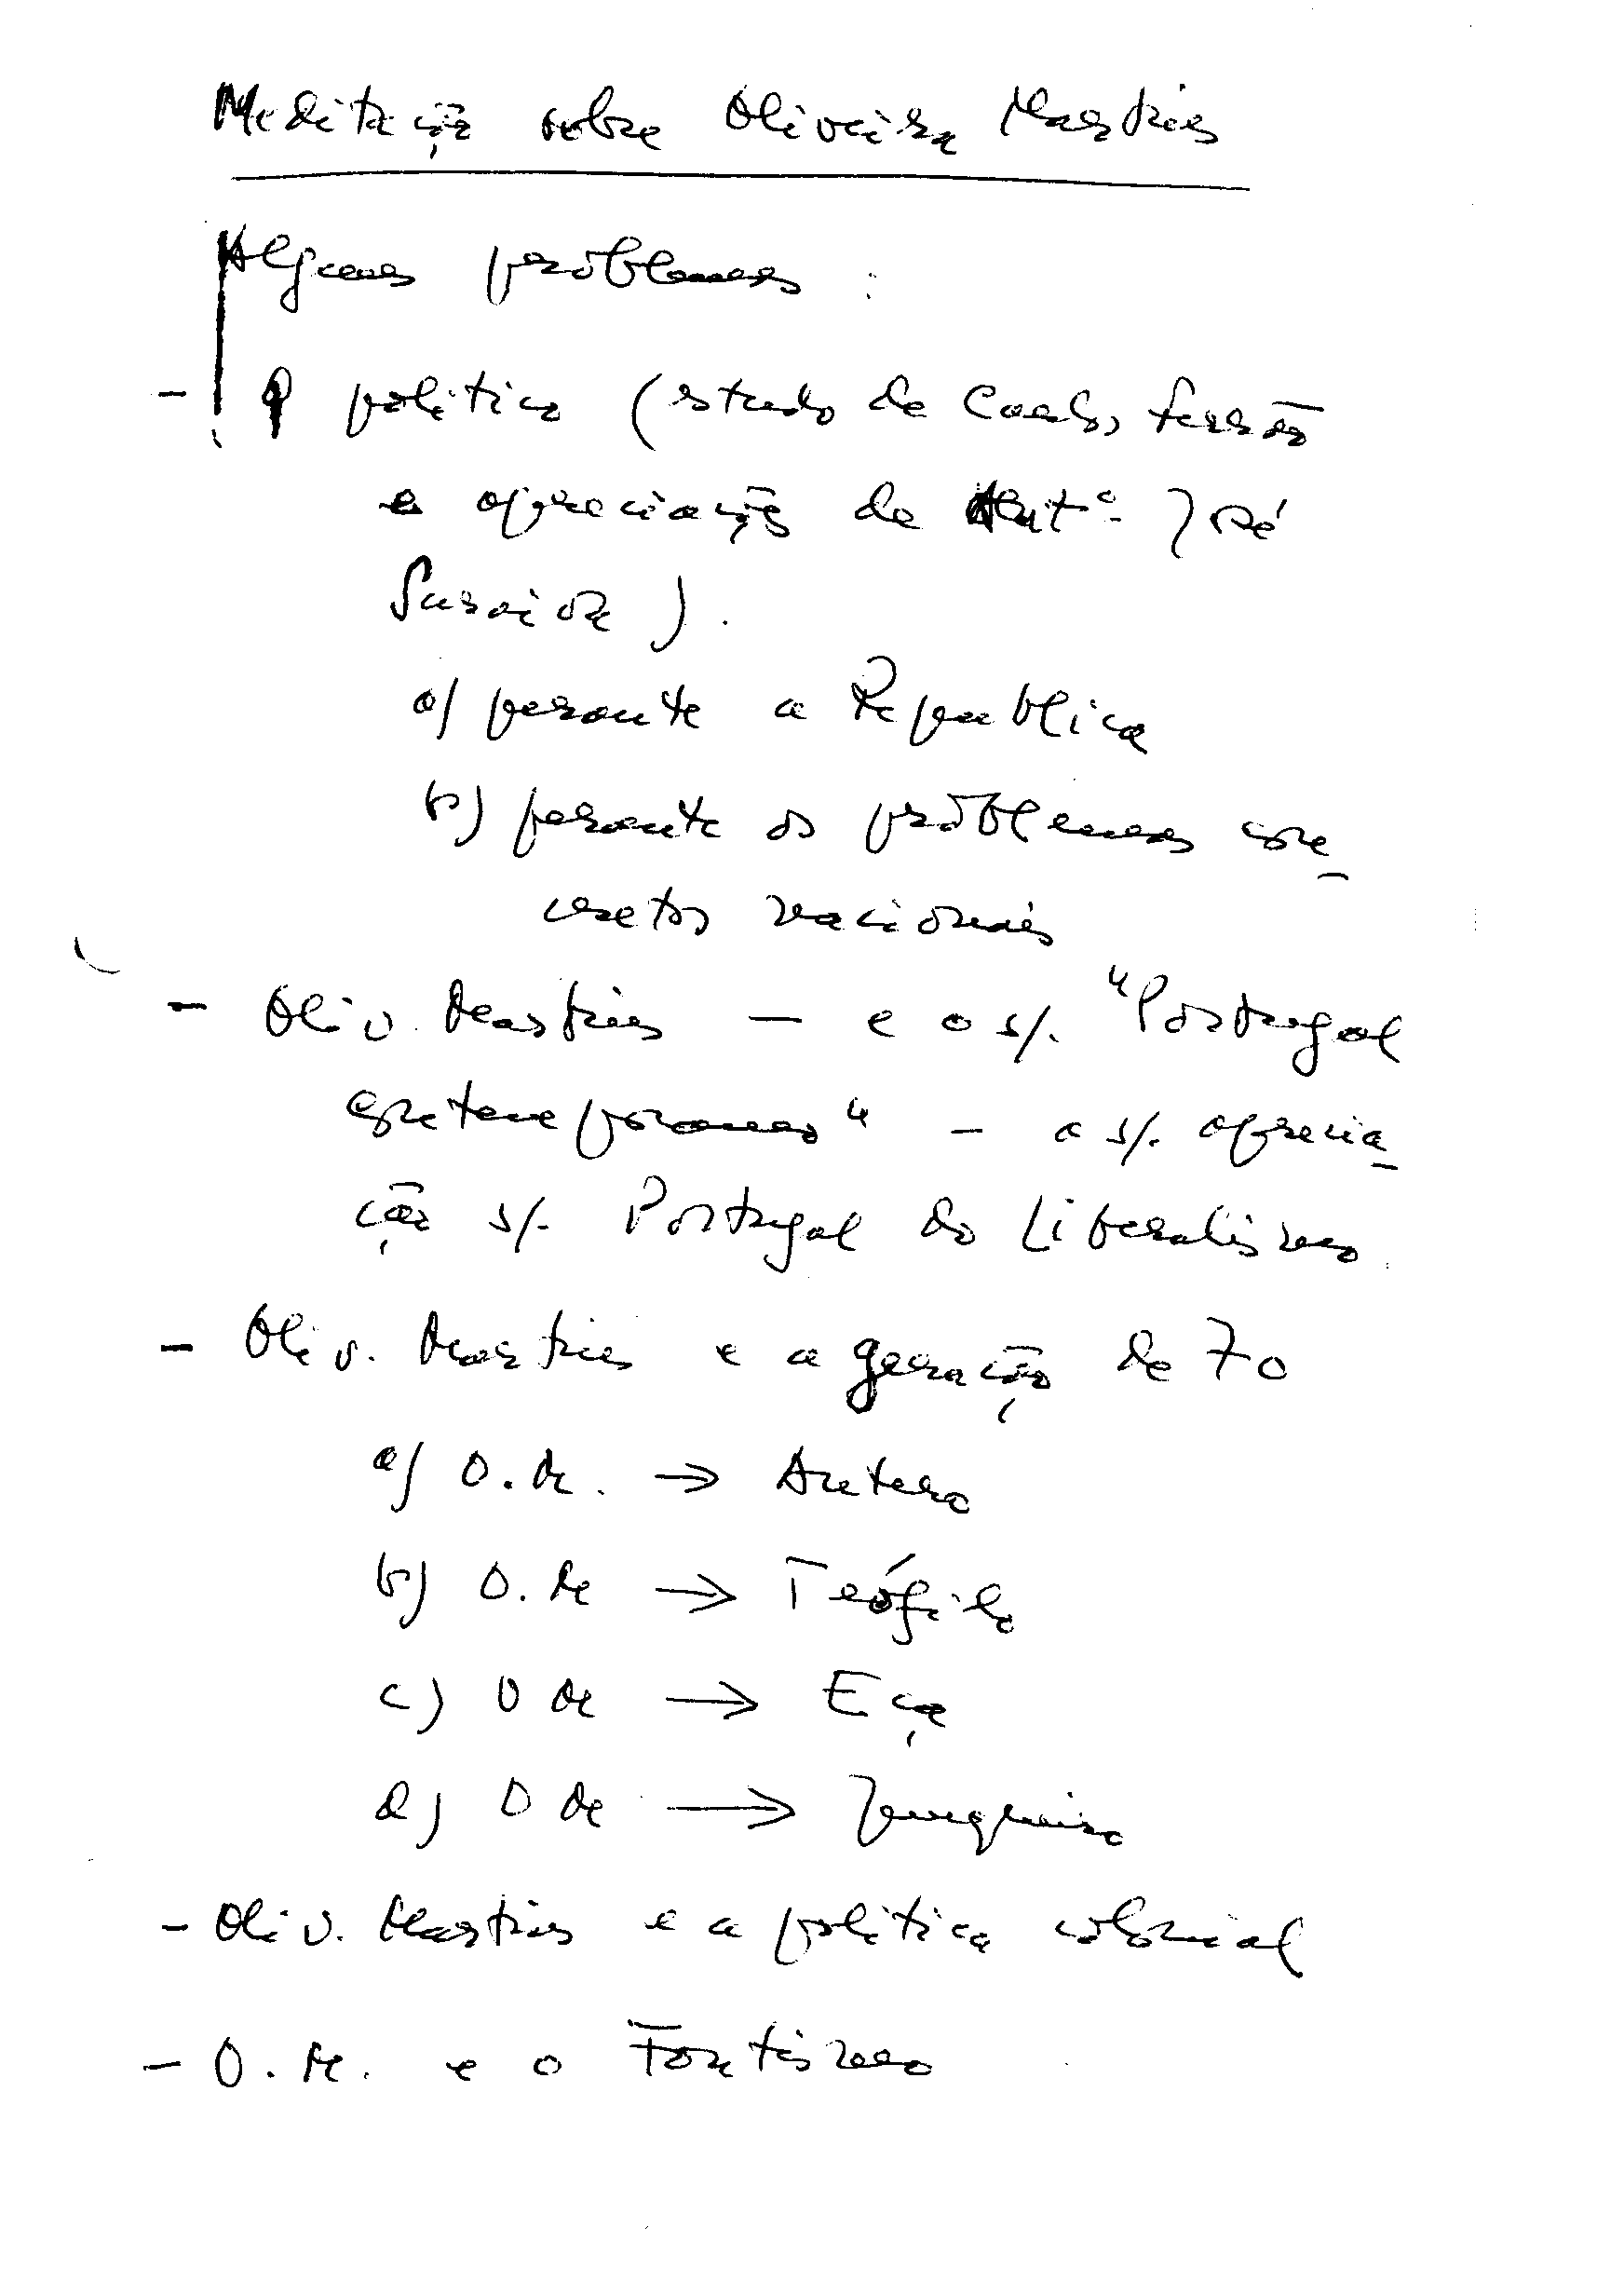 Meditação sobre Oliveira Martins
Alguns problemas :
- O politico (estudo de Carlos
e apreciação de Antº José
Saraiva).
a) perante a Republica
b) perante os problemas con-
cretos nacionais
- Oliv. Martins — e o s/. "Portugal
Contemporaneo" — a s/. aprecia-
ção s/. Portugal do Liberalismo.
- Oliv. Martins e a geração de 70
a) O. M. → Antero
b) O. M → Teófilo
c) O M → Eça
d) O M → Junqueiro
- Oliv. Martins e a politica colonial
- O. M. e o Fontismo